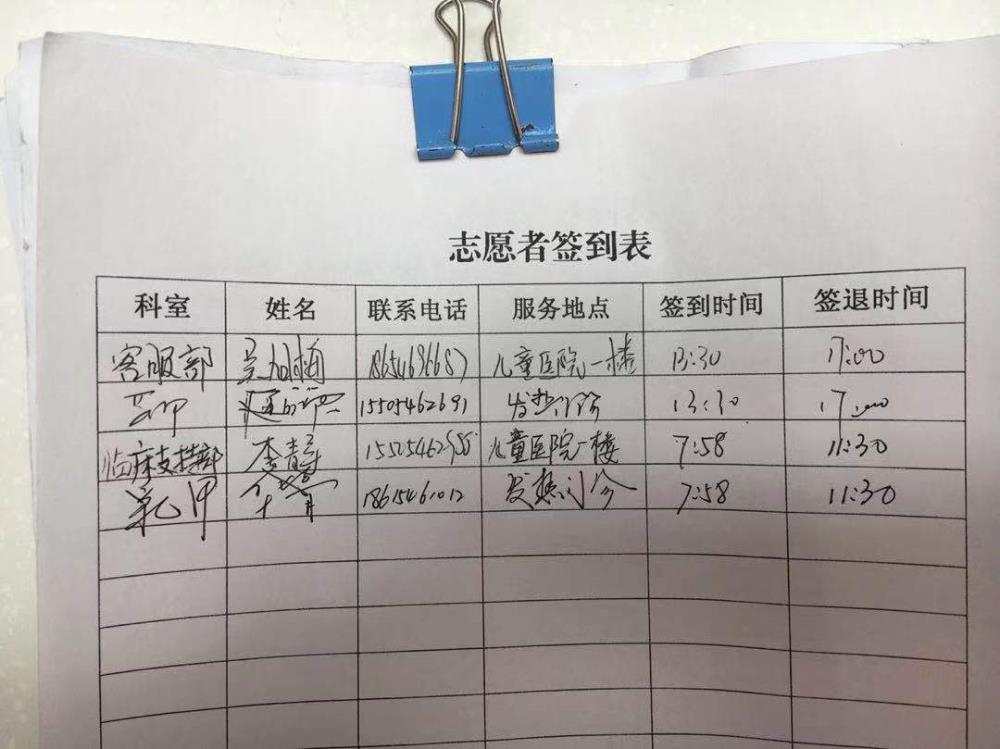 志愿者签到表
科室 姓名 联系电话 服务地点 签到时间 签退时间
客服部 儿童医院一楼 13:30 17:00
15505462691 发热门诊 13:30 17:00
临床支持部 李静 儿童医院一楼 7:58 11:30
发热门诊 7:58 11:30